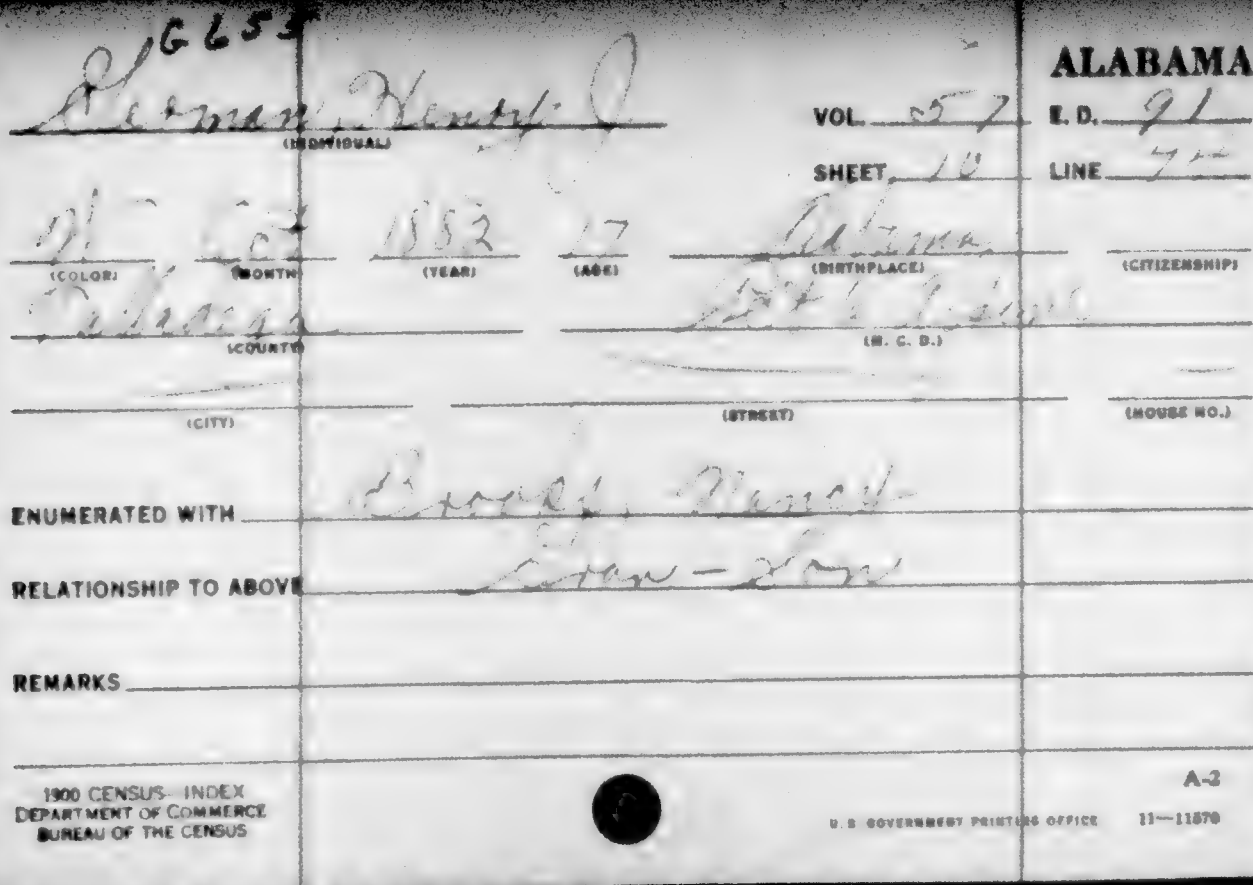 G 655
ALABAMA
German, Henry J
(INDIVIDUAL)
VOL. 57 E. D. 91
SHEET 10 LINE
W Oct 1882 17 Alabama
(COLOR) (MONTH) (YEAR) (AGE) (BIRTHPLACE) (CITIZENSHIP)
(COUNTY) (M. C. D.)
(CITY) (STREET) (HOUSE NO.)
ENUMERATED WITH Nancy
RELATIONSHIP TO ABOVE Gran-Son
REMARKS
1900 CENSUS- INDEX
DEPARTMENT OF COMMERCE
BUREAU OF THE CENSUS
A-2
U.S GOVERNMENT PRINTING OFFICE 11—11570